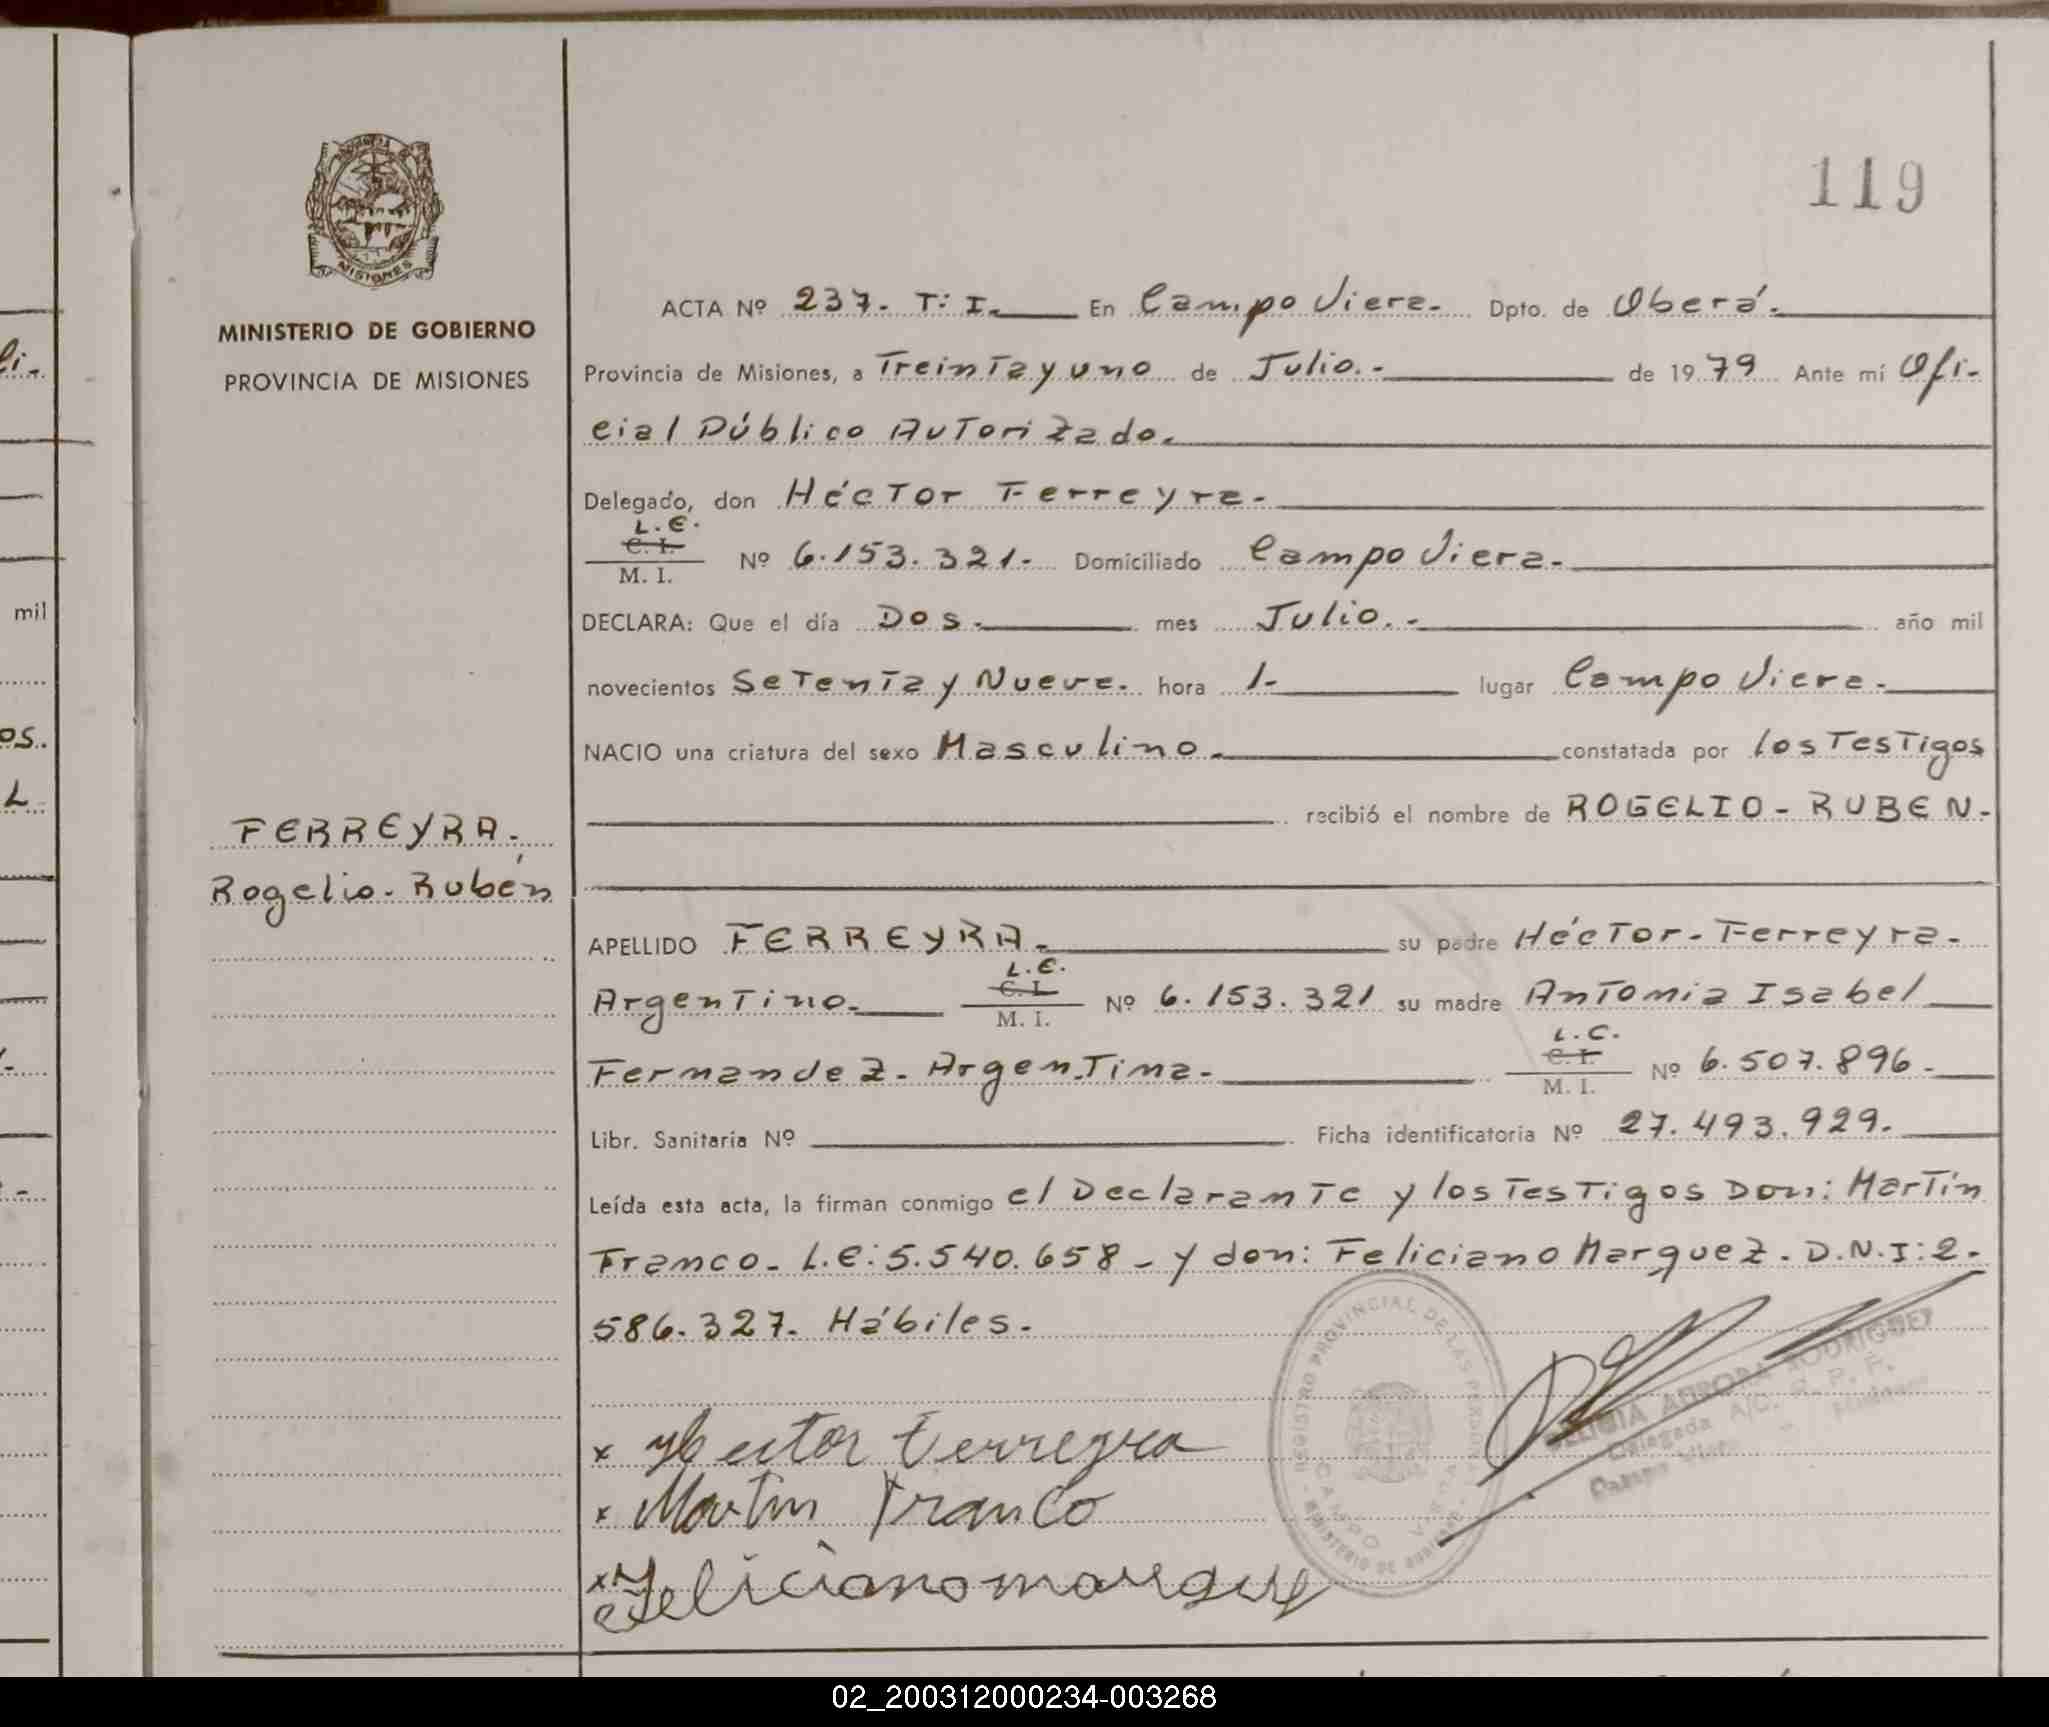 119
MISIONES
MINISTERIO DE GOBIERNO
PROVINCIA DE MISIONES
FERREYRA.
Rogelio-Rubén
ACTA Nº 237. T: I. En Campo Viera. Dpto. de Oberá.
Provincia de Misiones, a Treinta y uno de Julio.- de 1979 Ante mí Ofi-
cial Público Autorizado.
Delegado, don Héctor Ferreyra.
L.E.
C. I.
M. I. Nº 6.153.321. Domiciliado Campo Viera.
DECLARA: Que el día Dos. mes Julio.- año mil
novecientos Setenta y Nueve. hora 1- lugar Campo Viera.
NACIO una criatura del sexo Masculino. constatada por los Testigos
recibió el nombre de ROGELIO-RUBEN.
APELLIDO FERREYRA. su padre Héctor-Ferreyra.
L.E.
Argentino. C. I.
M. I. Nº 6.153.321 su madre Antonia Isabel
L.C.
Fernandez. Argentina. C. I.
M. I. Nº 6.507.896.
Libr. Sanitaria Nº Ficha identificatoria Nº 27.493.929.
Leída esta acta, la firman conmigo el Declarante y los Testigos Don: Martín
Franco. L.E: 5.540.658 - y don: Feliciano Marquez. D.N.I: 2.
586.327. Hábiles.
x Hector Ferreyra
x Martin Franco
x Feliciano marquez
REGISTRO PROVINCIAL DE LAS PERSONAS
MINISTERIO DE GOBIERNO
CAMPO VIERA
AURORA RODRIGUEZ
Delegada A/C. R. P. P.
Campo Viera - Misiones
mil
os.
L
02_200312000234-003268